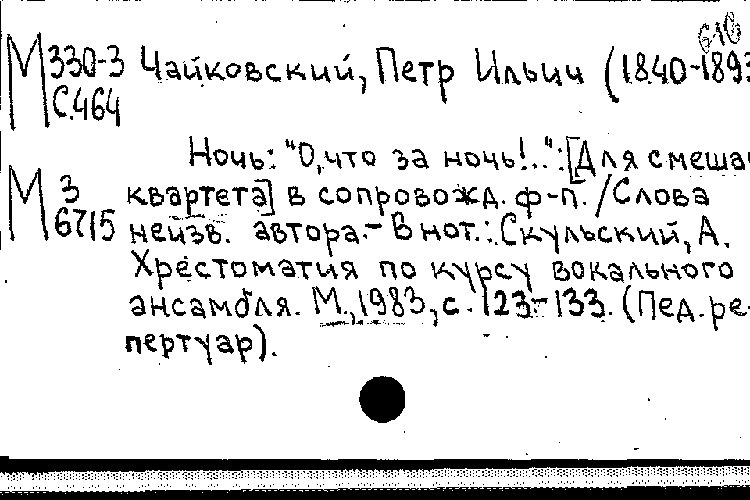 616
М 330-3 Чайковский, Петр Ильич (1840-1893
С.464
Ночь: "О, что за ночь!..": [Для смешан
М 3 квартета] в сопровожд. ф-п. / Слова
6715 неизв. автора.- В нот.: Скульский, А.
Хрестоматия по курсу вокального
ансамбля. М., 1983, с. 123-133. (Пед. ре-
пертуар).